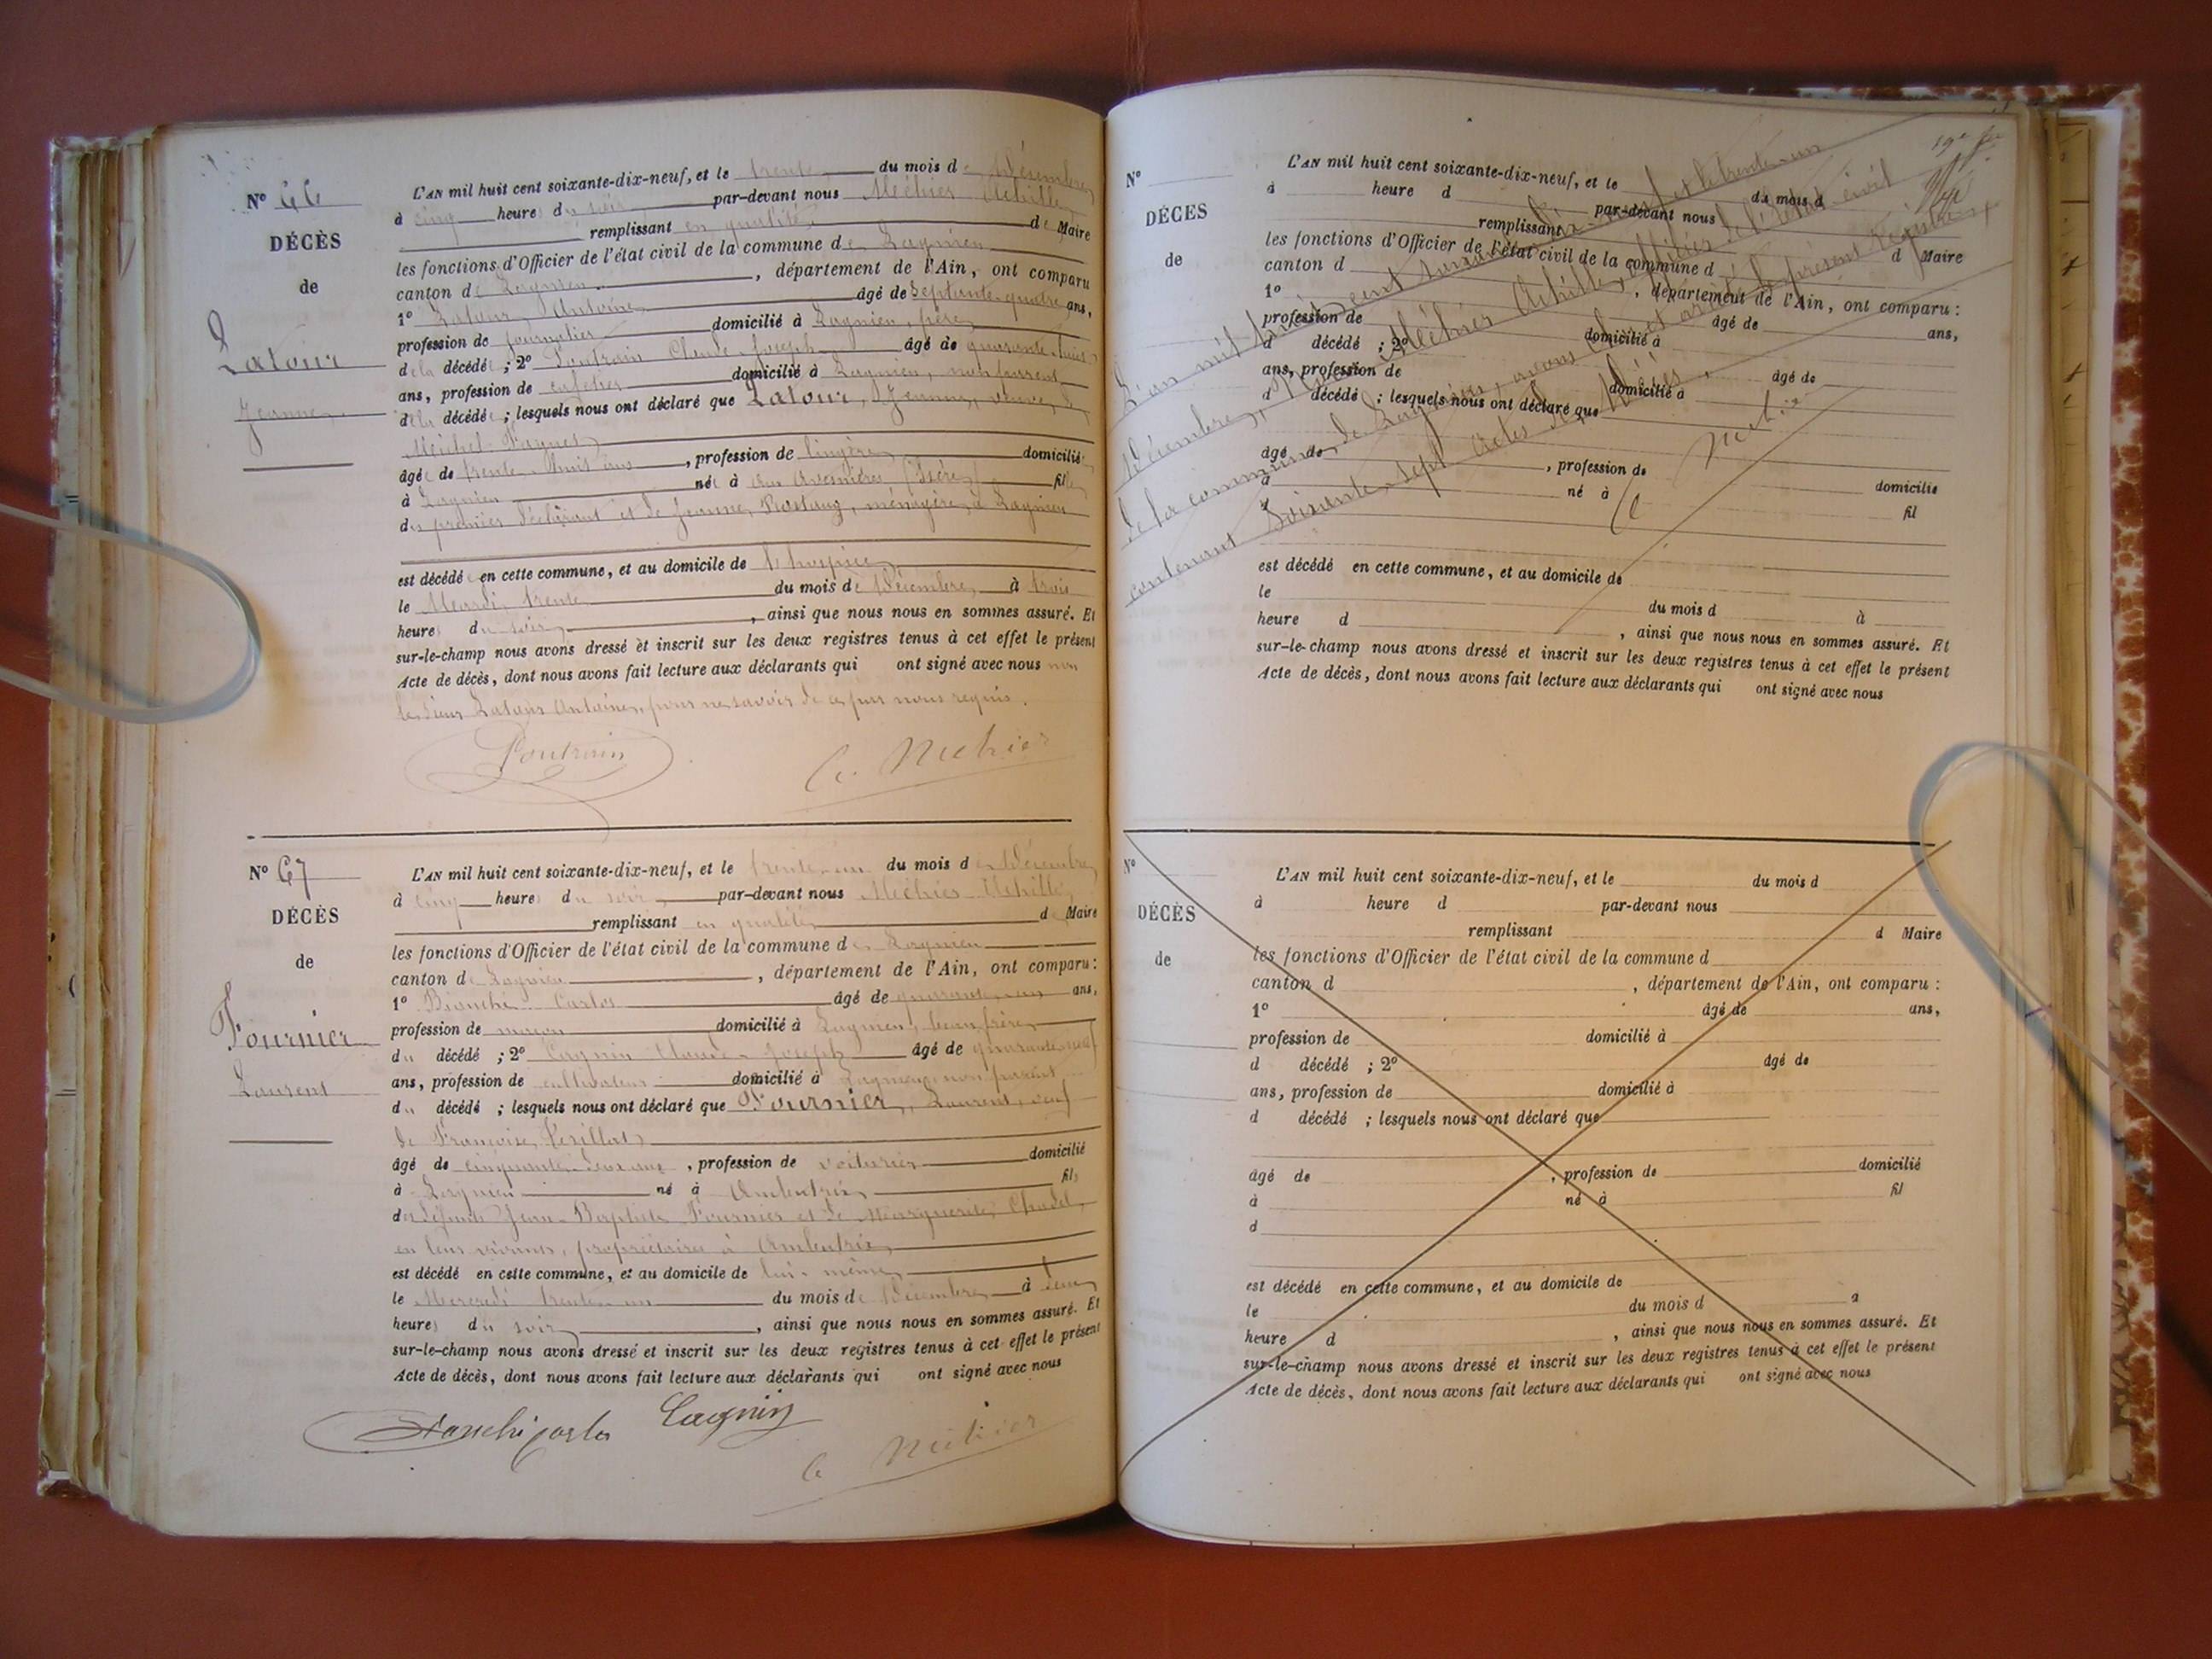 N° 66
DÉCÈS
de
Latour
Jeanne
L'AN mil huit cent soixante-dix-neuf, et le trente du mois de Décembre
à cinq heures du soir par-devant nous Méchier Achille
remplissant en qualité de Maire
les fonctions d'Officier de l'état civil de la commune de Lagnieu
canton de Lagnieu, département de l'Ain, ont comparu
1° Latour, Antoine âgé de septante-quatre ans,
profession de journalier domicilié à Lagnieu, père
de la décédée ; 2° Poutrain Claude-Joseph âgé de quarante-huit
ans, profession de domicilié à Lagnieu, non parent
de la décédée ; lesquels nous ont déclaré que Latour, Jeanne, veuve de
Michel
âgée de trente-huit ans, profession de lingère domiciliée
à Lagnieu née à aux Avenières (Isère) fille
du premier déclarant et de Jeanne, ménagère, à Lagnieu
est décédée en cette commune, et au domicile de l'hospice
le Mardi trente du mois de Décembre à trois
heures du soir, ainsi que nous nous en sommes assuré. Et
sur-le-champ nous avons dressé et inscrit sur les deux registres tenus à cet effet le présent
Acte de décès, dont nous avons fait lecture aux déclarants qui ont signé avec nous non
le sieur Latour Antoine, pour ne savoir de ce par nous requis.
Poutrain A. Méchier
N° 67
DÉCÈS
de
Fournier
Laurent
L'AN mil huit cent soixante-dix-neuf, et le trente-un du mois de Décembre
à cinq heures du soir par-devant nous Méchier Achille
remplissant en qualité d Maire
les fonctions d'Officier de l'état civil de la commune de Lagnieu
canton de Lagnieu, département de l'Ain, ont comparu :
1° Bianchi Carlos âgé de quarante-un ans,
profession de maçon domicilié à Lagnieu, beau-frère
du décédé ; 2° Cagnin Claude-Joseph âgé de quarante-neuf
ans, profession de cultivateur domicilié à Lagnieu, non parent
du décédé ; lesquels nous ont déclaré que Fournier, Laurent, veuf
de Françoise
âgé de cinquante-deux ans, profession de voiturier domicilié
à Lagnieu né à Ambutrix fils
des défunts Jean-Baptiste Fournier et de Marguerite Chadel,
en leur vivant, propriétaires à Ambutrix,
est décédé en cette commune, et au domicile de lui-même
le Mercredi trente-un du mois de Décembre à deux
heures du soir, ainsi que nous nous en sommes assuré. Et
sur-le-champ nous avons dressé et inscrit sur les deux registres tenus à cet effet le présent
Acte de décès, dont nous avons fait lecture aux déclarants qui ont signé avec nous
Bianchi Carlos Cagnin A. Méchier
N°
DÉCÈS
de
L'AN mil huit cent soixante-dix-neuf, et le du mois d
à heure d par-devant nous
remplissant d Maire
les fonctions d'Officier de l'état civil de la commune d
canton d , département de l'Ain, ont comparu :
1° âgé de ans,
profession de domicilié à
d décédé ; 2° âgé de
ans, profession de domicilié à
d décédé ; lesquels nous ont déclaré que
âgé de , profession de domicilié
à né à fil
d
est décédé en cette commune, et au domicile de
le du mois d à
heure d , ainsi que nous nous en sommes assuré. Et
sur-le-champ nous avons dressé et inscrit sur les deux registres tenus à cet effet le présent
Acte de décès, dont nous avons fait lecture aux déclarants qui ont signé avec nous
L'an mil huit cent soixante-dix-neuf et le trente-un
Décembre, Nous Méchier Achille, officier de l'état-civil
de la commune de Lagnieu, avons clos et arrêté le présent Registre
contenant Soixante-sept Actes de Décès.
N°
DÉCÈS
de
L'AN mil huit cent soixante-dix-neuf, et le du mois d
à heure d par-devant nous
remplissant d Maire
les fonctions d'Officier de l'état civil de la commune d
canton d , département de l'Ain, ont comparu :
1° âgé de ans,
profession de domicilié à
d décédé ; 2° âgé de
ans, profession de domicilié à
d décédé ; lesquels nous ont déclaré que
âgé de , profession de domicilié
à né à fil
d
est décédé en cette commune, et au domicile de
le du mois d à
heure d , ainsi que nous nous en sommes assuré. Et
sur-le-champ nous avons dressé et inscrit sur les deux registres tenus à cet effet le présent
Acte de décès, dont nous avons fait lecture aux déclarants qui ont signé avec nous